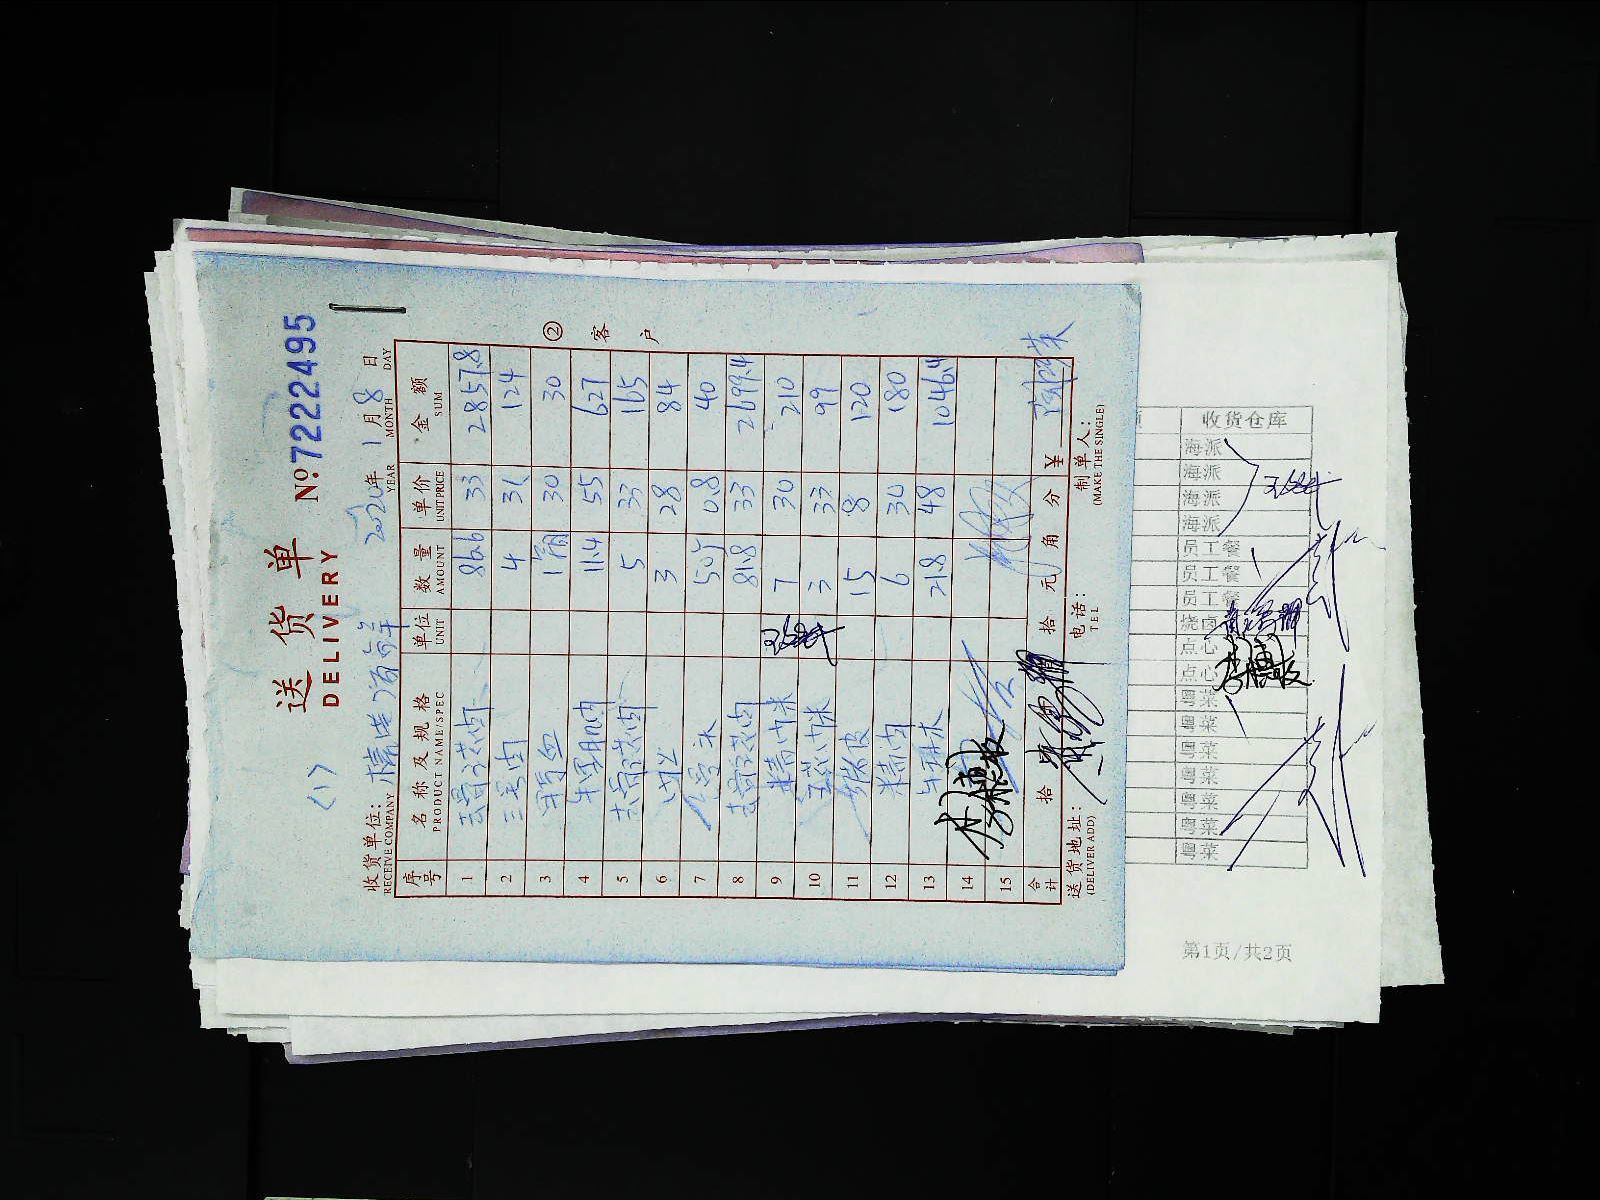 送 货 单
DELIVERY
№ 7222495
(1)
收货单位:
RECEIVE COMPANY
2020年 1月 8日
YEAR MONTH DAY
序号 名称及规格 单位 数量 单价 金额
PRODUCT NAME/SPEC UNIT AMOUNT UNIT PRICE SUM
1 去骨花肉 86.6 33 2857.8
2 三毛肉 4 31 124
3 血 1 30 30
4 肉 11.4 55 627
5 去骨花肉 5 33 165
6 3 28 84
7 50斤 0.8 40
8 去骨花肉 81.8 33 2699.4
9 精肉米 7 30 210
10 33 99
11 皮 15 8 120
12 精肉 6 30 180
13 21.8 48 1046.4
14
15
合计 拾 拾 元 角 分 ¥
送货地址: 电话: 制单人:
(DELIVER ADD) TEL (MAKE THE SINGLE)
② 客 户
收货仓库
海派
海派
海派
海派
员工餐
员工餐
员工餐
烧卤
点心
点心
粤菜
粤菜
粤菜
粤菜
粤菜
粤菜
粤菜
第1页/共2页